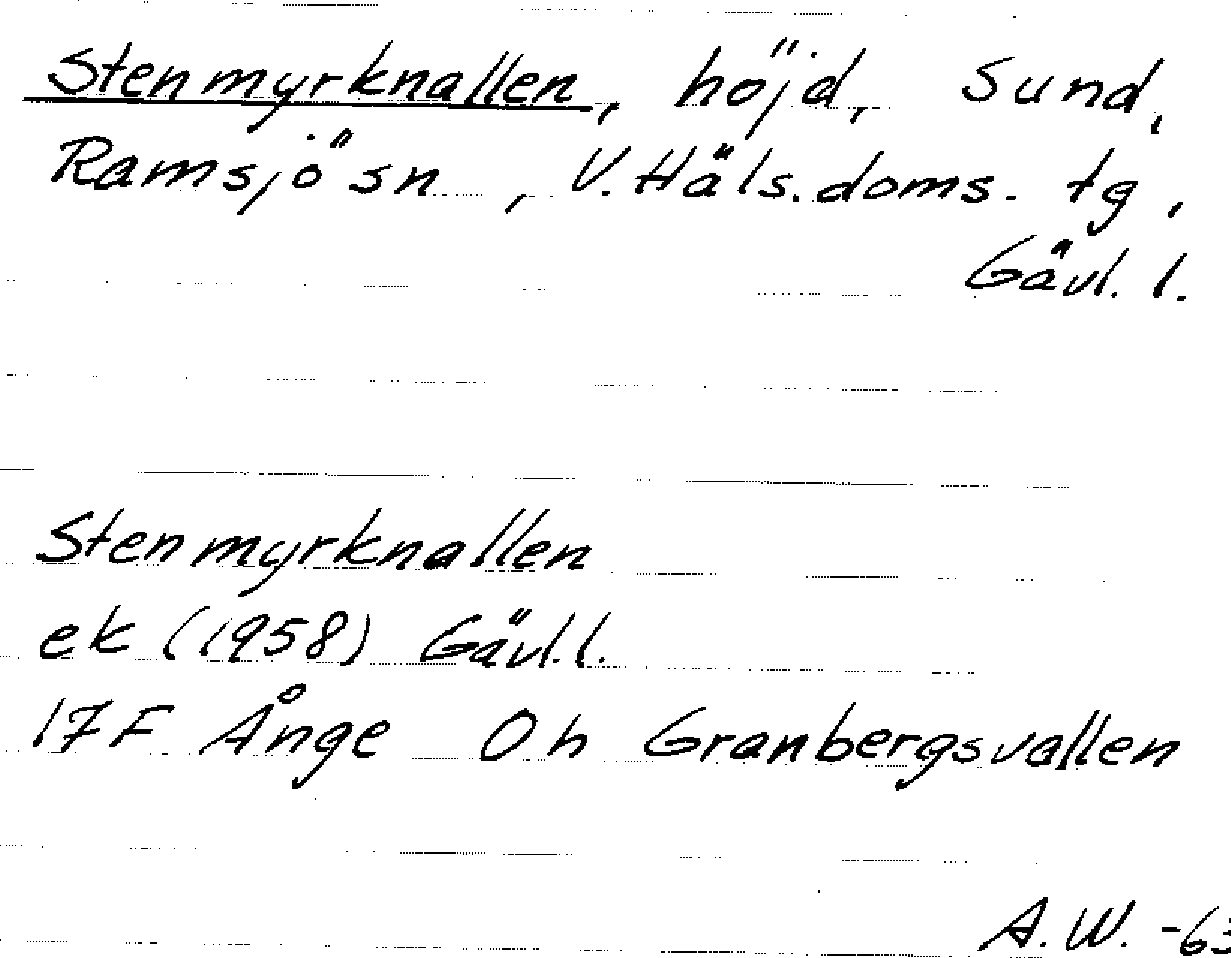 Stenmyrknallen, höjd, Sund,
Ramsjö sn, V. Häls. doms. tg,
Gävl. l.
Stenmyrknallen
ek (1958) Gävl. l.
17F Ånge 0h Granbergsvallen
A. W. -63